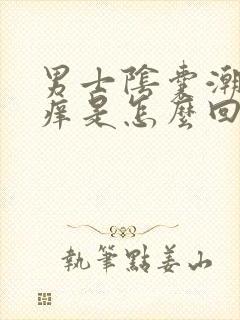 男士陰囊潮
癢是怎麼回
執筆點姜山